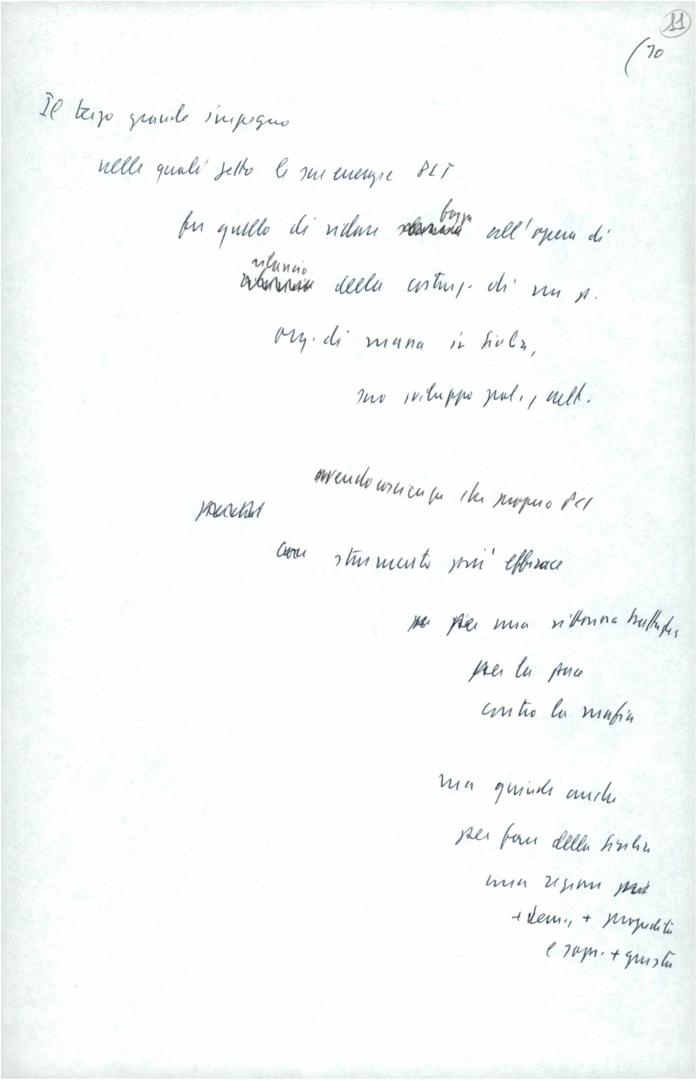 11
(10
Il terzo grande impegno
nelle quali gettò le sue energie PLT
fu quello di ridare forza all'opera di
rilancio della costruz. di un p.
org. di massa in Sicilia,
suo sviluppo pol., cult.
avendo coscienza che proprio PCI
era strumento più efficace
per una vittoriosa battaglia
per la pace
contro la mafia
ma quindi anche
per fare della Sicilia
una regione
+ dem., + progredita
e sopr. + giusta